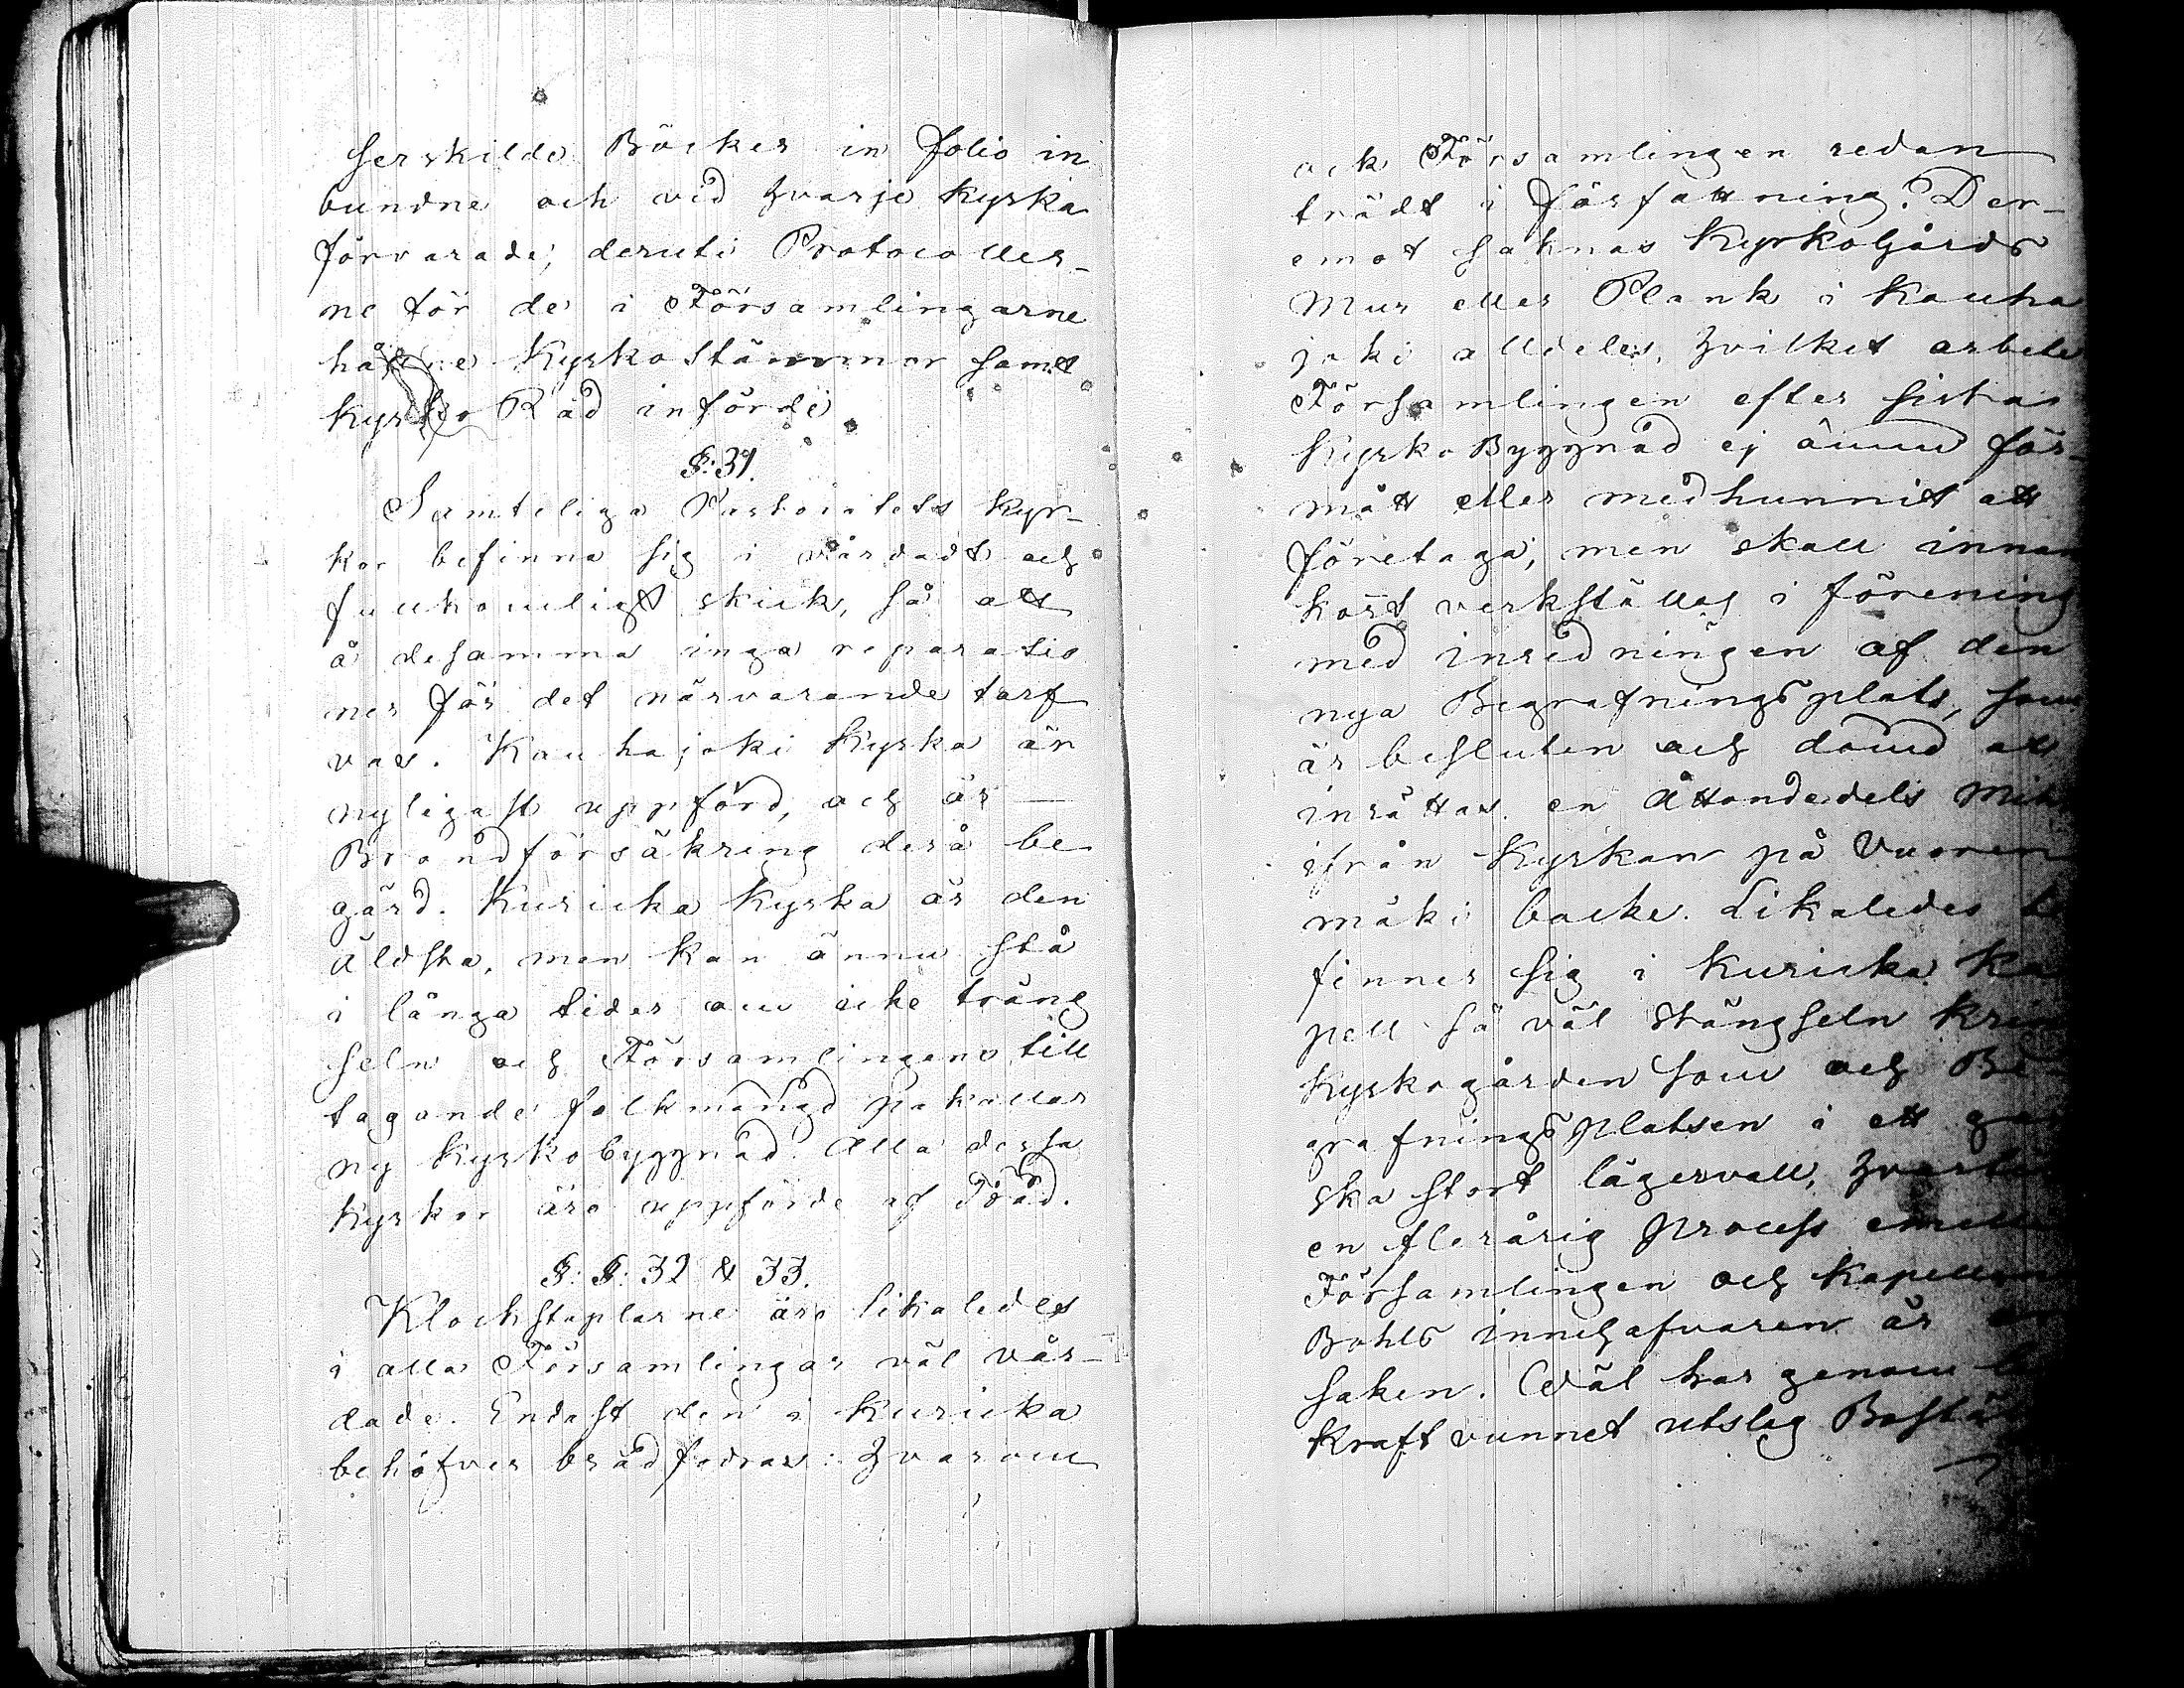 serskilde Böcker in folio in
bundne och vid hvarje Kyrka
förvarade; deruti Protocoller-
ne för de i Församlingarne
hållne Kyrkostämmor samt
Kyrko Råd införde.
§: 31.
Samteliga Pastoratets Kyr-
kor befinna sig i vårdadt och
fullkomligt skick, så att
å desamma inga reparatio
ner för det närvarande tarf
vas. Kauhajoki Kyrka är
nyligast uppförd, och är —
Brandförsäkring derå be
gärd. Kuricka Kyrka är den
äldsta, men kan ännu stå
i långa tider om icke träng
seln och Församlingens till
tagande folkmängd påkallar
ny Kyrkobyggnad. Alla dessa
Kyrkor äro uppförde af Träd.
§: §: 32 & 33.
Klockstaplarne äro likaledes
i alla Församlingar väl vår-
dade. Endast den i Kuricka
behöfver brädfodras: hvarom
ock Församlingen redan
trädt i författning. Der-
emot saknas Kyrkogårds
Mur eller Plank i Kauha
joki alldeles, hvilket arbete
Församlingen efter sista
Kyrko Byggnad ej ännu för-
mått eller medhunnit att
företaga; men skall innan
kort verkställas i förening
med inredningen af den
nya Begrafningsplats, som
är besluten och dömd att
inrättas en Åttondedels Mil
ifrån Kyrkan på Vuoren
mäki backe. Likaledes be
finner sig i Kuricka Ka
pell så väl stängseln kring
Kyrkogården som och Be-
grafningsplatsen i ett gan
ska stort lägervall, hvartil
en flerårig process emellan
Församlingen och Kapellans
Bohls innehafvaren är or
saken. Wäl har genom
Kraftvunnet utslag